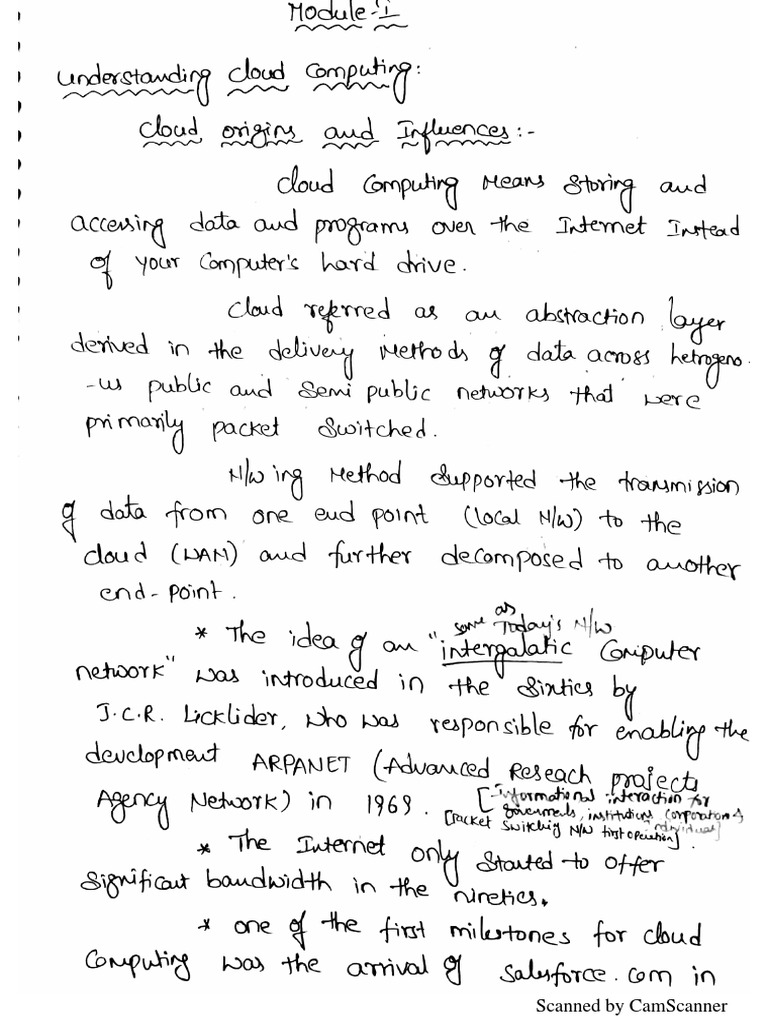 Module-I
Understanding Cloud Computing:
Cloud origins and Influences:-
Cloud Computing Means Storing and
accessing data and programs over the Internet Instead
of your Computer's hard drive.
Cloud referred as an abstraction layer
derived in the delivery Methods of data across hetrogeno
-us public and Semi public networks that were
primarily packet Switched.
N/w ing Method Supported the transmission
of data from one end point (local N/W) to the
cloud (WAN) and further decomposed to another
end-point.
same as Today's N/W
* The idea of an "intergalatic Computer
network" was introduced in the Sixties by
J.C.R. Licklider, who was responsible for enabling the
development ARPANET (Advanced Reseach projects
Agency Network) in 1969. [Informational interaction for
governments, institutions, corporations & individual]
[Packet Switching N/W first operation]
* The Internet only Started to offer
Significant bandwidth in the nineties.
* one of the first milestones for cloud
Computing was the arrival of Salesforce.com in
Scanned by CamScanner